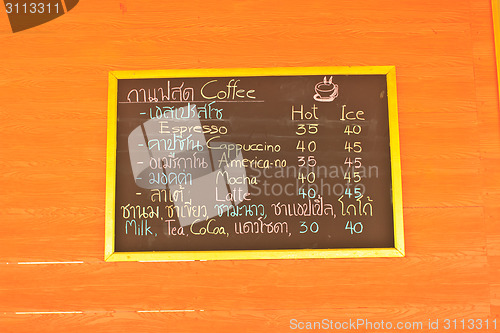 กาแฟสด Coffee
Hot Ice
- เอสเปรสโซ
Espresso 35 40
- คาปูชิโน Cappuccino 40 45
- อเมริกาโน America-no 35 45
- มอคค่า Mocha 40 45
- ลาเต้ Latte 40 45
ชานม, ชาเขียว, ชามะนาว, ชาแอปเปิ้ล, โกโก้
Milk, Tea, CoCoa, แดงโซดา, 30 40